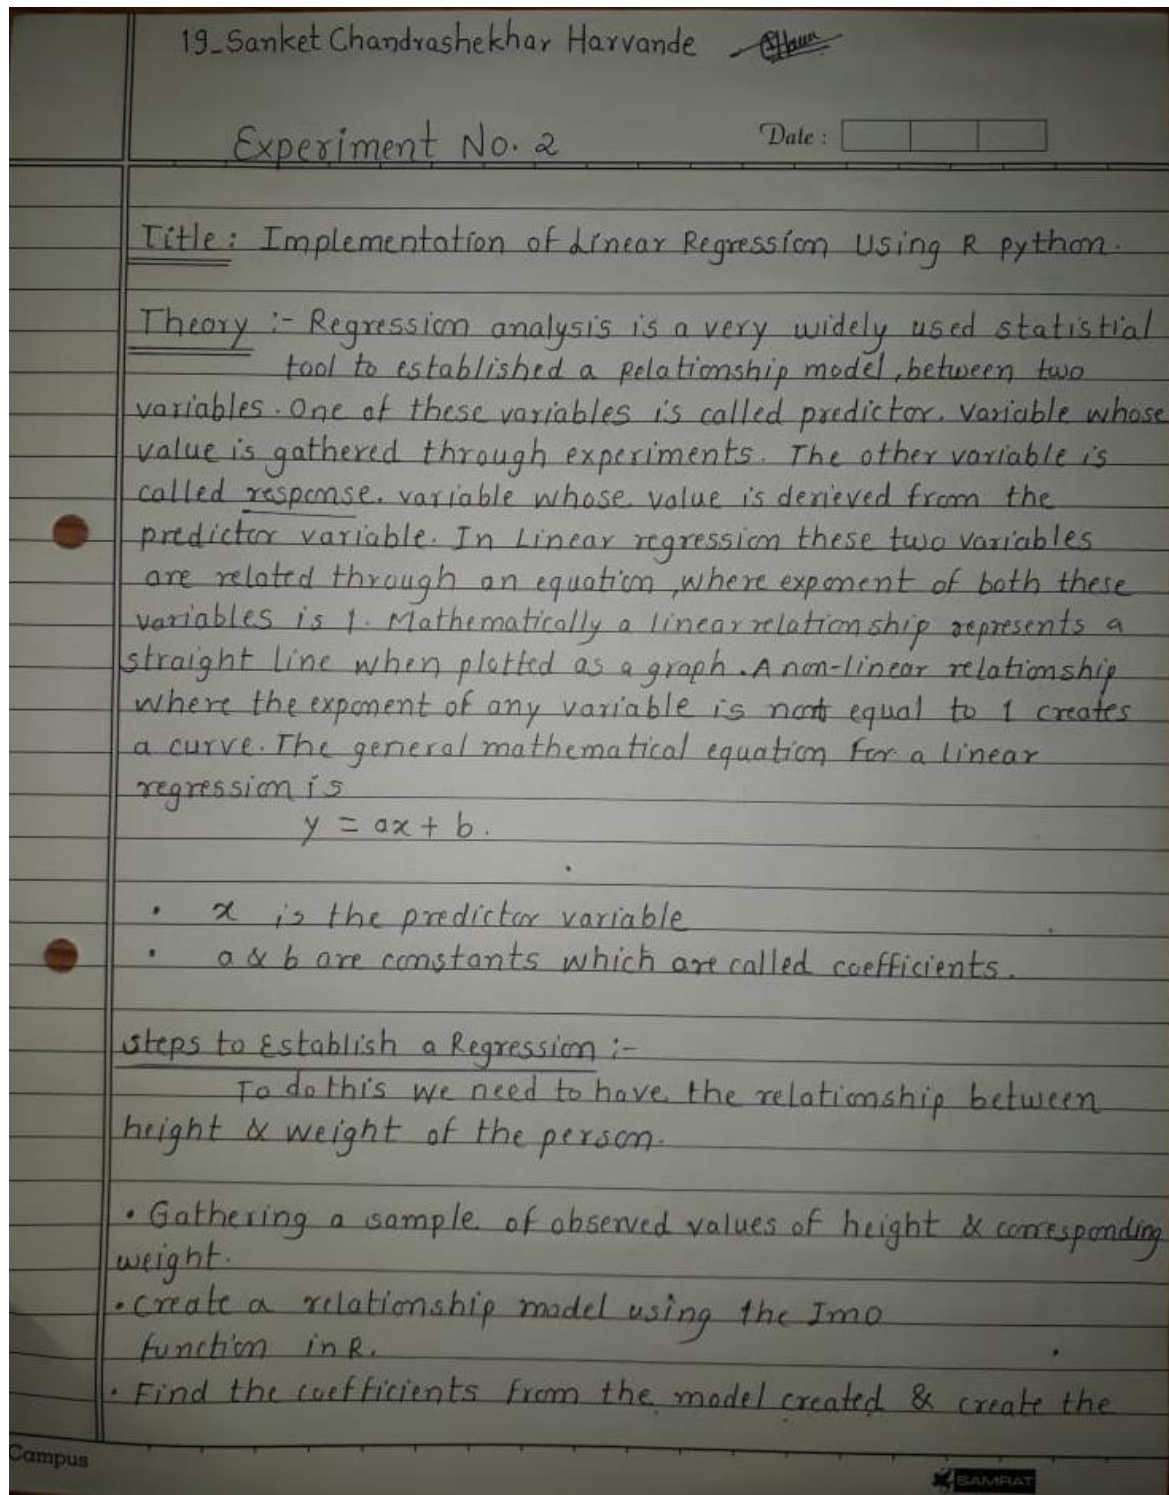 19_Sanket Chandrashekhar Harvande
Experiment No. 2
Date :
Title : Implementation of Linear Regression Using R python.
Theory :- Regression analysis is a very widely used statistial
tool to established a Relationship model, between two
variables. One of these variables is called predictor. Variable whose
value is gathered through experiments. The other variable is
called response. variable whose value is derieved from the
predictor variable. In Linear regression these two variables
are related through an equation, where exponent of both these
variables is 1. Mathematically a linear relationship represents a
straight line when plotted as a graph. A non-linear relationship
where the exponent of any variable is not equal to 1 creates
a curve. The general mathematical equation for a linear
regression is
y = ax + b.
• x is the predictor variable
• a & b are constants which are called coefficients.
Steps to Establish a Regression :-
To do this we need to have the relationship between
height & weight of the person.
• Gathering a sample of observed values of height & corresponding
weight.
• create a relationship model using the Imo
function in R.
• Find the coefficients from the model created & create the
Campus
SAMRAT